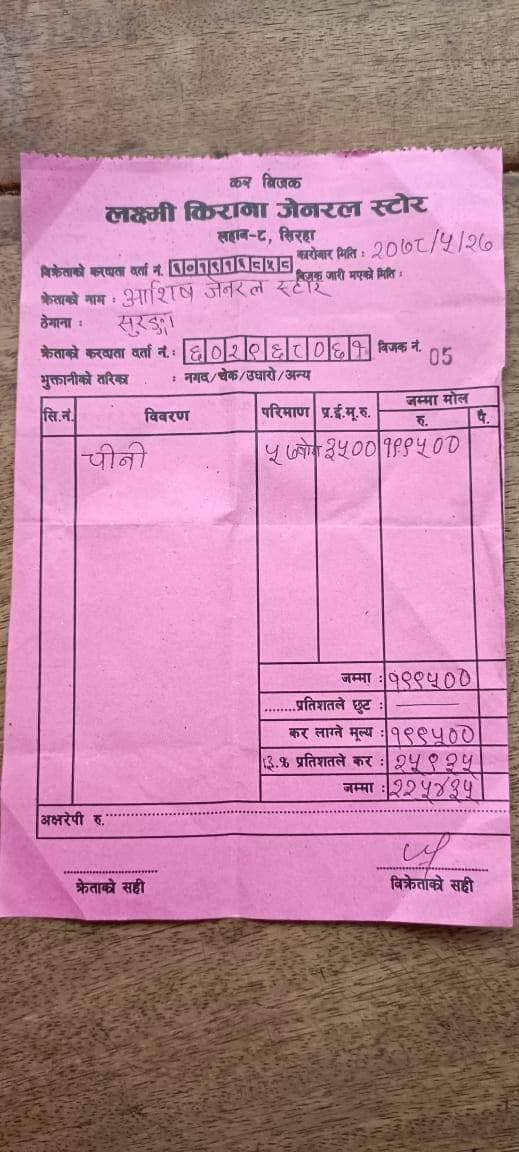 कर बिजक
लक्ष्मी किराना जेनरल स्टोर
लहान-८, सिरहा
कारोबार मिति : २०७८/५/२७
विक्रेताको करदाता दर्ता नं. बिजक जारी भएको मिति :
क्रेताको नाम : आशिष जेनरल स्टोर
ठेगाना : सुरुङ्गा
क्रेताको करदाता दर्ता नं. : ६०२९६८०६१ बिजक नं. 05
भुक्तानीको तरिका : नगद/चेक/उधारो/अन्य
सि.नं. विवरण परिमाण प्र.ई.मू.रु. जम्मा मोल
रु. पै.
चीनी ५७बोरा ३५०० १९९५००
जम्मा : १९९५००
........प्रतिशतले छुट : ——
कर लाग्ने मूल्य : १९९५००
१३.% प्रतिशतले कर : २५९३५
जम्मा : २२५४३५
अक्षरेपी रु.
क्रेताको सही विक्रेताको सही